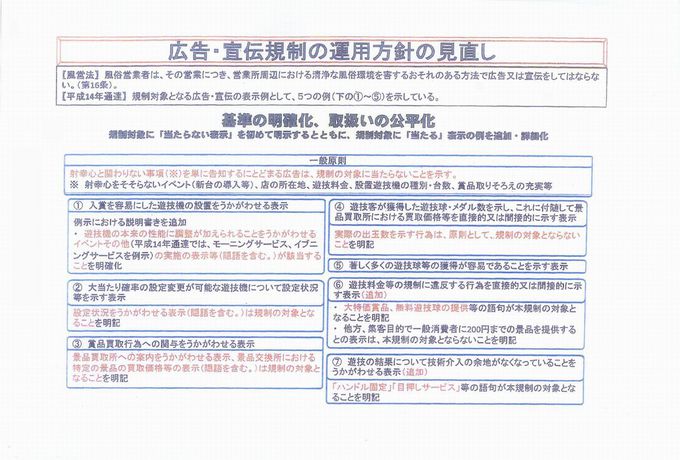 広告・宣伝規制の運用方針の見直し
【風営法】 風俗営業者は、その営業につき、営業所周辺における清浄な風俗環境を害するおそれのある方法で広告又は宣伝をしてはならな
い。（第16条）。
【平成14年通達】 規制対象となる広告・宣伝の表示例として、5つの例（下の①～⑤）を示している。
基準の明確化、取扱いの公平化
規制対象に「当たらない表示」を初めて明示するとともに、規制対象に「当たる」表示の例を追加・詳細化
一般原則
射幸心と関わりない事項（※）を単に告知するにとどまる広告は、規制の対象に当たらないことを示す。
※ 射幸心をそそらないイベント（新台の導入等）、店の所在地、遊技料金、設置遊技機の種別・台数、賞品取りそろえの充実等
① 入賞を容易にした遊技機の設置をうかがわせる表示
例示における説明書きを追加
・ 遊技機の本来の性能に調整が加えられることをうかがわせる
イベントその他（平成14年通達では、モーニングサービス、イブニ
ングサービスを例示）の実施の表示等（隠語を含む。）が該当する
ことを明確化
② 大当たり確率の設定変更が可能な遊技機について設定状況
等を示す表示
設定状況をうかがわせる表示（隠語を含む。）は規制の対象とな
ることを明記
③ 賞品買取行為への関与をうかがわせる表示
景品買取所への案内をうかがわせる表示、景品交換所における
特定の景品の買取価格等の表示（隠語を含む。）は規制の対象と
なることを明記
④ 遊技客が獲得した遊技球・メダル数を示し、これに付随して景
品買取所における買取価格等を直接的又は間接的に示す表示
実際の出玉数を示す行為は、原則として、規制の対象とならない
ことを明記
⑤ 著しく多くの遊技球等の獲得が容易であることを示す表示
⑥ 遊技料金等の規制に違反する行為を直接的又は間接的に示
す表示（追加）
・ 大特価賞品、無料遊技球の提供等の語句が本規制の対象とな
ることを明記
・ 他方、集客目的で一般消費者に200円までの景品を提供する
との表示は、本規制の対象とならないことを明記
⑦ 遊技の結果について技術介入の余地がなくなっていることを
うかがわせる表示（追加）
「ハンドル固定」「目押しサービス」等の語句が本規制の対象とな
ることを明記